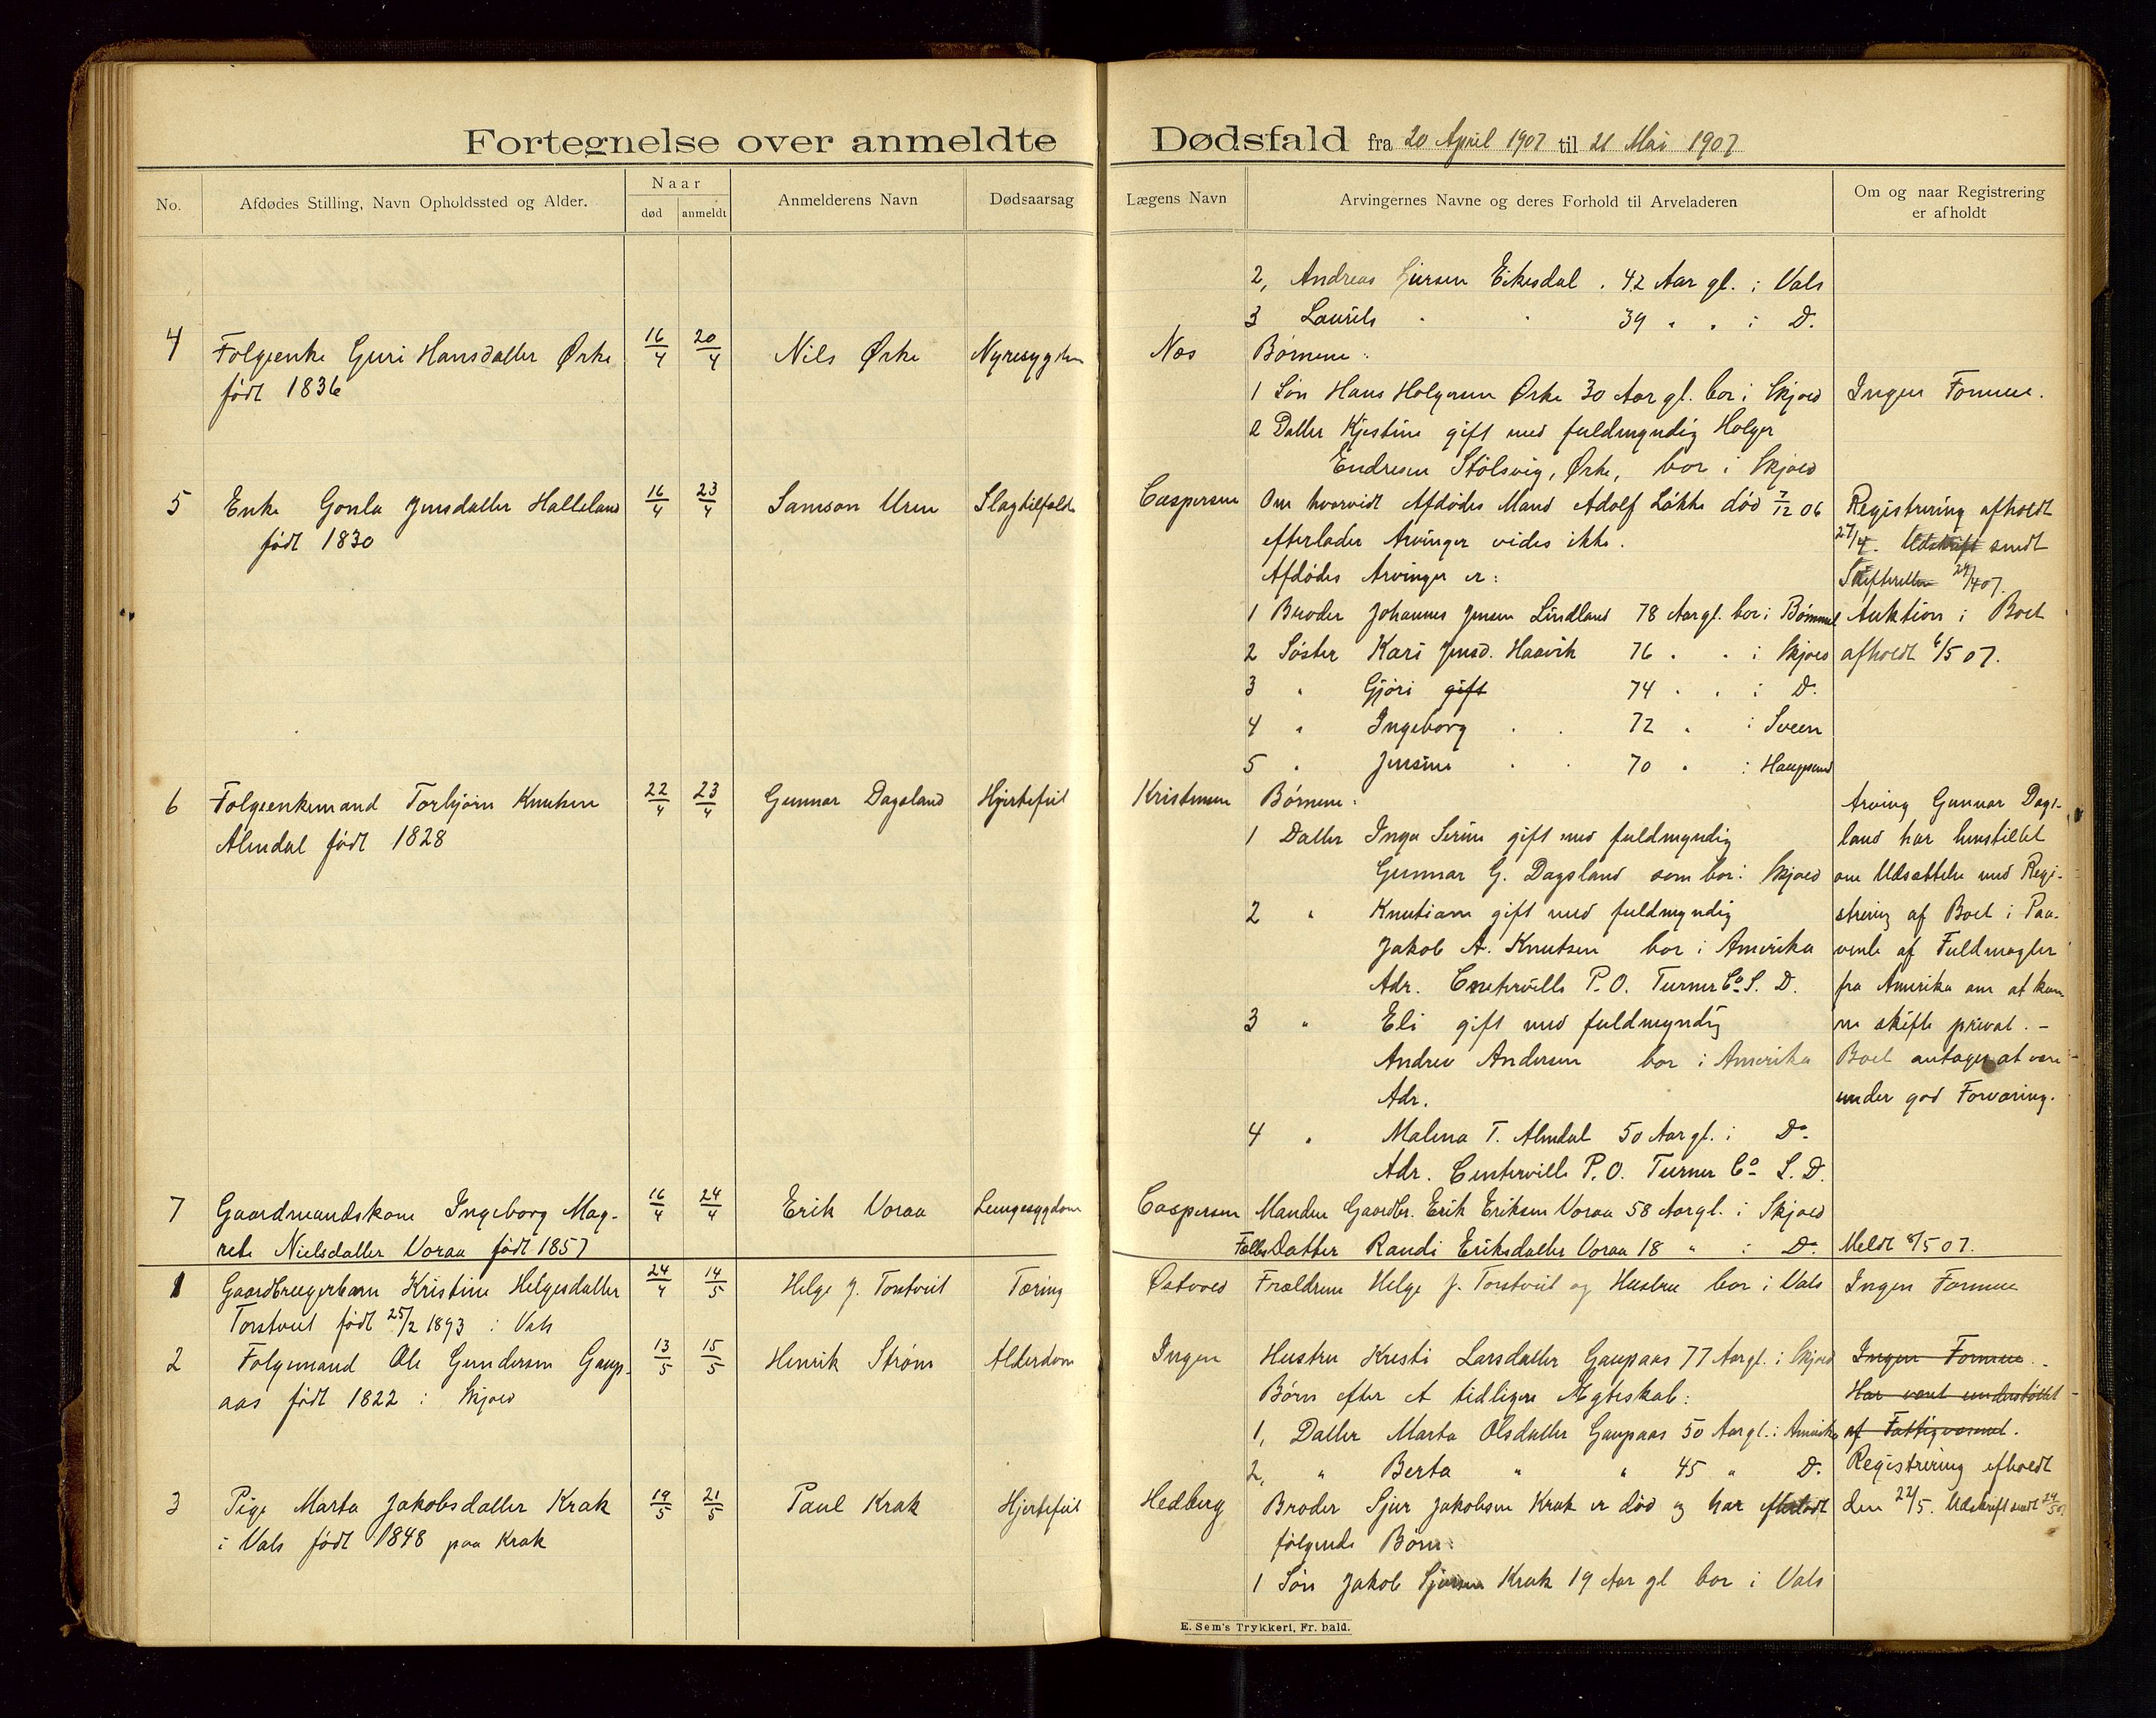 Fortegnelse over anmeldte Dødsfald fra 20 April 1907 til 21 Mai 1907
No.
Afdødes Stilling, Navn Opholdssted og Alder.
Naar
død
anmeldt
Anmelderens Navn
Dødsaarsag
Lægens Navn
Arvingernes Navne og deres Forhold til Arveladeren
Om og naar Registrering
er afholdt
2, Andreas Eikesdal . 42 Aar gl. i Vals
3 Laurits " " 39 " " i Do.
4
Folgeenke Guri Hansdatter Ørke
født 1836
16/4
20/4
Nils Ørke
Nyresygdom
Næs
Børnene:
1 Søn Hans Holgersen Ørke 30 Aar gl. bor i Skjold
2 Datter Kjestine gift med fuldmyndig Holger
Endresen Stölsvig, Ørke, bor i Skjold
Ingen Formue.
5
Enke Gonla Jensdatter Halleland
født 1830
16/4
23/4
Samson Uren
Slagtilfælde
Caspersen
Om hvorvidt Afdødes Mand Adolf Løkke død 7/12 06
efterlader Arvinger vides ikke.
Afdødes Arvinger er:
1 Broder Johannes Jensen Lindland 78 Aar gl. bor i Bømmel
2 Søster Kari Jensd. Haavik 76 " " i Skjold
3 " Gjøri gift 74 " " i Do.
4 " Ingeborg " " 72 " i Sveen
5 " Jensine " " 70 " i Haugesund
Registrering afholdt
27/4. Udskrift sendt
Skifteretten 29/4 07.
Auktion i Boet
afholdt 6/5 07.
6
Folgeenkemand Torbjørn Knutsen
Almdal født 1828
22/4
23/4
Gunnar Dagsland
Hjertefeil
Kristensen
Børnene:
1 Datter Inga Serine gift med fuldmyndig
Gunnar G. Dagsland som bor i Skjold
2 " Knutiane gift med fuldmyndig
Jakob A. Knutsen bor i Amerika
Adr. Centerville P.O. Turner Co. S. D.
3 " Eli gift med fuldmyndig
Andrev Andersen bor i Amerika
Adr.
4 " Malena T. Almdal 50 Aar gl. i Do.
Adr. Centerville P.O. Turner Co S. D.
Arving Gunnar Dags-
land har henstillet
om Udsættelse med Regi-
strering af Boet i Paa-
vente af Fuldmagter
fra Amerika om at kun-
ne skifte privat. -
Boet antages at være
under god Forvaring.
7
Gaardmandskone Ingeborg Mag-
rete Nielsdatter Voraa født 1857
16/4
24/4
Erik Voraa
Lungesygdom
Caspersen
Manden Gaardbr. Erik Eriksen Voraa 58 Aar gl. i Skjold
Fælles Datter Randi Eriksdatter Voraa 18 " i Do.
Meldt 8/5 07.
1
Gaardbrugerbarn Kristine Helgesdatter
Torstveit født 25/2 1893 i Vals
24/4
14/5
Helge J. Torstveit
Tæring
Østvold
Forældrene Helge J. Torstveit og Hustru bor i Vals
Ingen Formue
2
Folgemand Ole Gundersen Gaup-
aas født 1822 i Skjold
13/5
15/5
Henrik Strøm
Alderdom
Ingen
Hustru Kristi Larsdatter Gaupaas 77 Aar gl. i Skjold
Børn efter et tidligere Ægteskab:
1, Datter Marta Olsdatter Gaupaas 50 Aar gl. i Amerika
2, " Berta " " 45 " Do.
Ingen Formue.
Har været understøttet
af Fattigvæsenet.
Registrering afholdt
den 22/5. Udskrift sendt
3
Pige Marta Jakobsdatter Krak
i Vals født 1848 paa Krak
19/5
21/5
Paul Krak
Hjertefeil
Hedberg
Broder Sjur Jakobsen Krak er død og har efterladt
følgende Børn:
1 Søn Jakob Sjursen Krak 19 Aar gl bor i Vals
E. Sem's Trykkeri, Fr. hald.